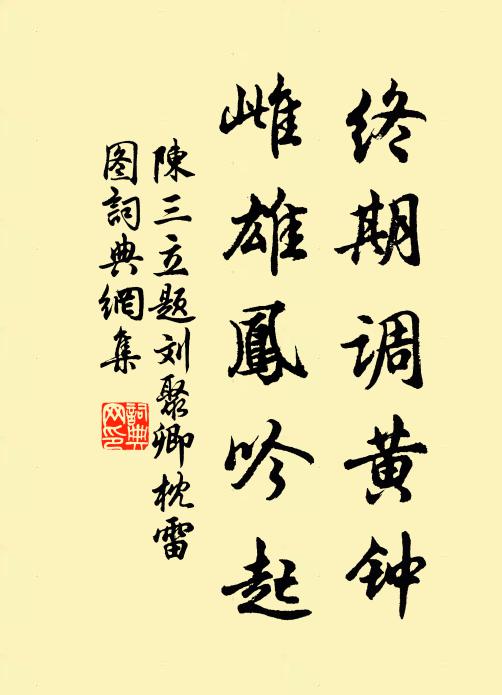 终期调黄钟
雌雄鳳吟起
陳三立题刘聚卿枕雷
图詞典網集
詞典网印